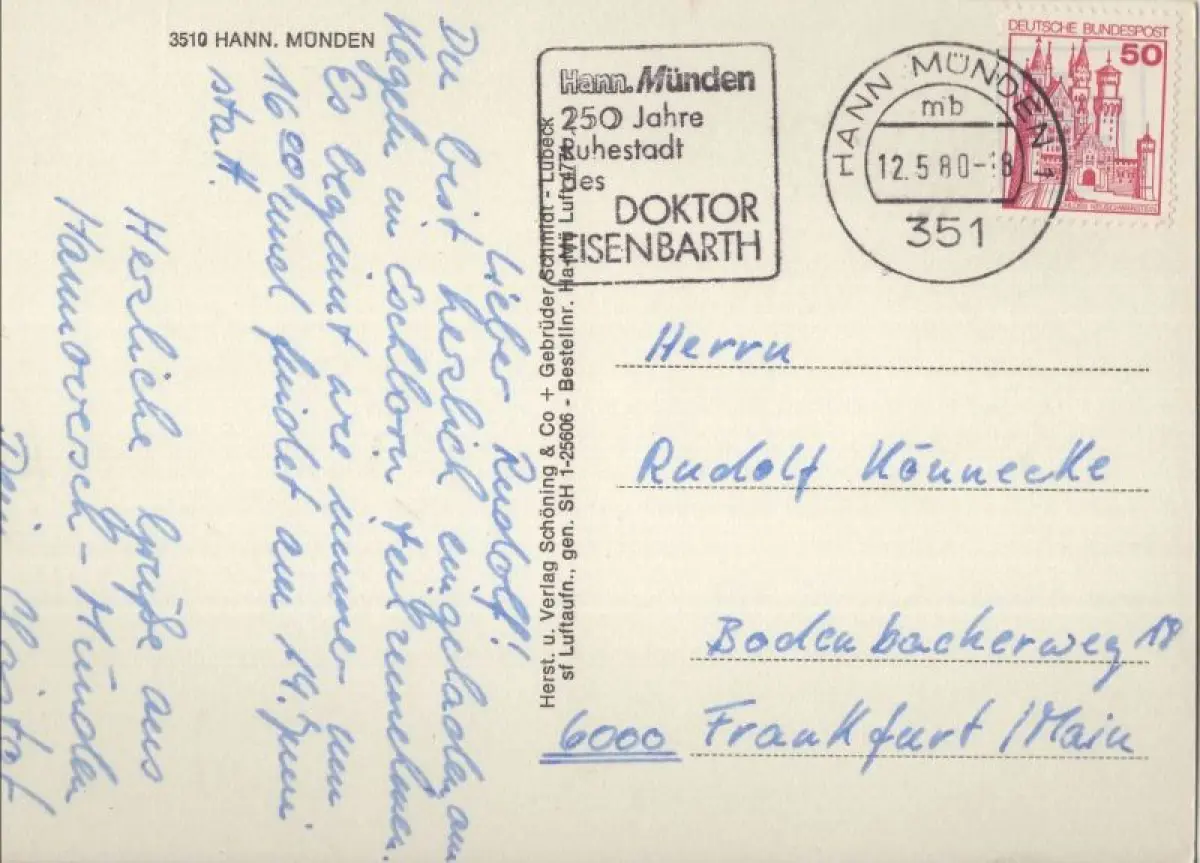 3510 HANN. MÜNDEN
Lieber Rudolf!
Du bist herzlich eingeladen, am
Kegeln in Eschborn teilzunehmen.
Es beginnt wie immer um
16 00 und findet am 14. Juni
statt.
Herzliche Grüße aus
Hannoversch-Münden
Dein
Herst. u. Verlag Schöning & Co + Gebrüder Schmidt - Lübeck
sf Luftaufn., gen. SH 1-25606 - Bestellnr. Ha-Mü Luft
Hann. Münden
250 Jahre
Ruhestadt
des
DOKTOR
EISENBARTH
HANN MÜNDEN 1
mb
12.5.80-18
351
DEUTSCHE BUNDESPOST
50
SCHLOSS NEUSCHWANSTEIN
Herrn
Rudolf Könnecke
Bodenbacherweg 18
6000 Frankfurt/Main